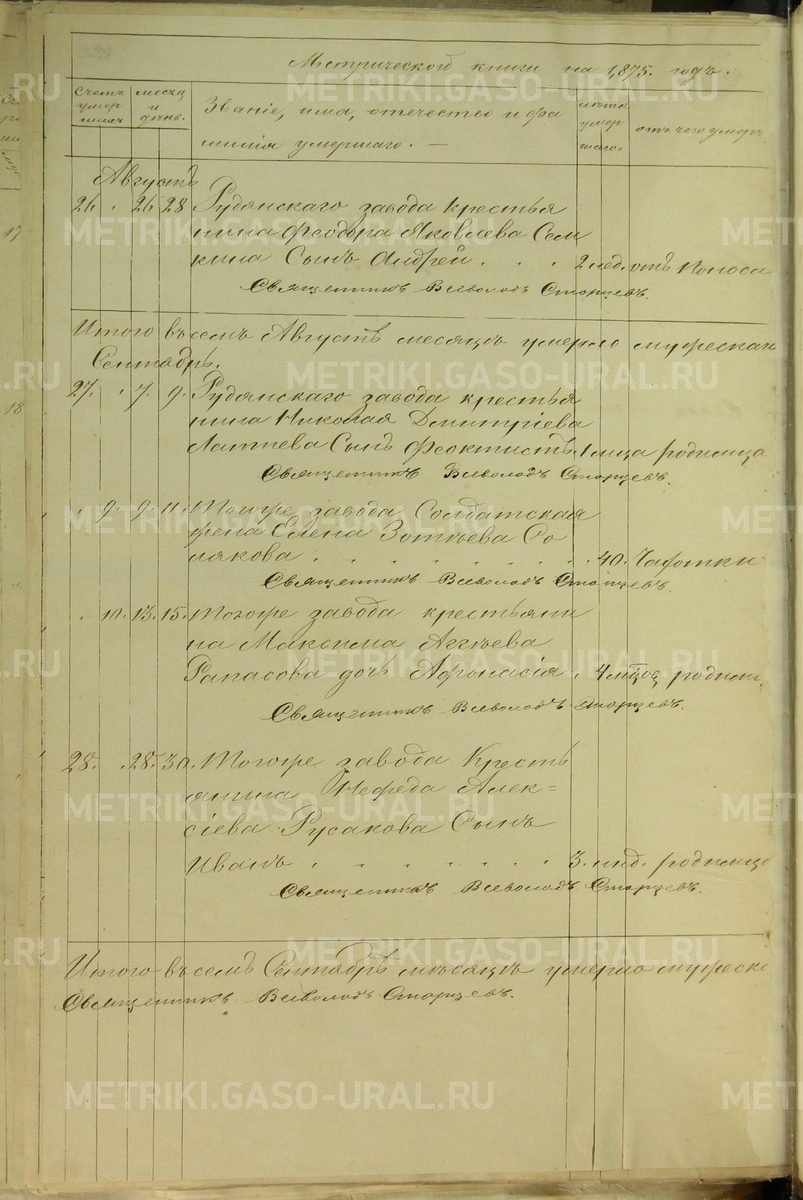 Метрической книги на 1,875. годъ.
Счетъ умер шихъ
месяц и день.
Званіе, имя, отечество и фа милія умершаго. —
лета умер шаго.
отъ чего умеръ
Августъ
26 . 26 28 Рудянскаго завода Крестья
нина Феодора Яковлева Сем
кина Сынъ Андрей . . . 2 нед. отъ Поноса
Священникъ Всеволодъ Старцевъ.
Итого въ семъ Августѣ месяцѣ умерло мужескаг
Сентябрь.
27. . 7. 9. Рудянскаго завода крестья
нина Николая Дмитріева
Лаптева Сынъ Феоктистъ. 1 мца родимца
Священникъ Всеволодъ Старцевъ.
. 9. 9. 11. Тогоже завода Солдатская
жена Елена Зотѣева Со
лякова . . . . . . . 40. Чахотки
Священникъ Всеволодъ Старцевъ.
. 10. 13. 15. Тогоже завода крестьяни
на Максима Аггѣева
Рапасова дочь Афонасія . 4 мцовъ родими.
Священникъ Всеволодъ Старцевъ.
28. . 28. 30. Тогоже завода Кресть
янина Нефеда Алек=
сіева Русакова Сынъ
Иванъ . . . . . . . 3. нид. родимца
Священникъ Всеволодъ Старцевъ.
Итого въ семъ Сентябрѣ мѣсяцѣ умерло мужеск
Священникъ Всеволодъ Старцевъ.
17
18
METRIKI.GASO-URAL.RU